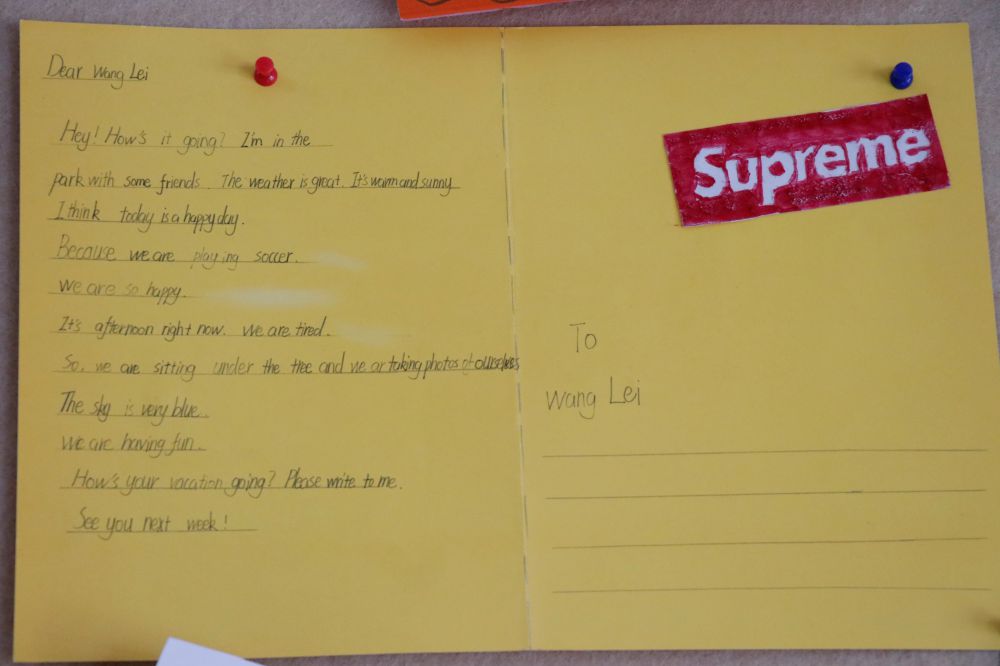 Dear Wang Lei
Hey! How's it going? I'm in the
park with some friends. The weather is great. It's warm and sunny
I think today is a happy day.
Because we are playing soccer.
We are so happy.
It's afternoon right now. We are tired.
So, we are sitting under the tree and we ar taking photos of ourselves
The sky is very blue.
We are having fun.
How's your vacation going? Please write to me.
See you next week!
Supreme
To
Wang Lei